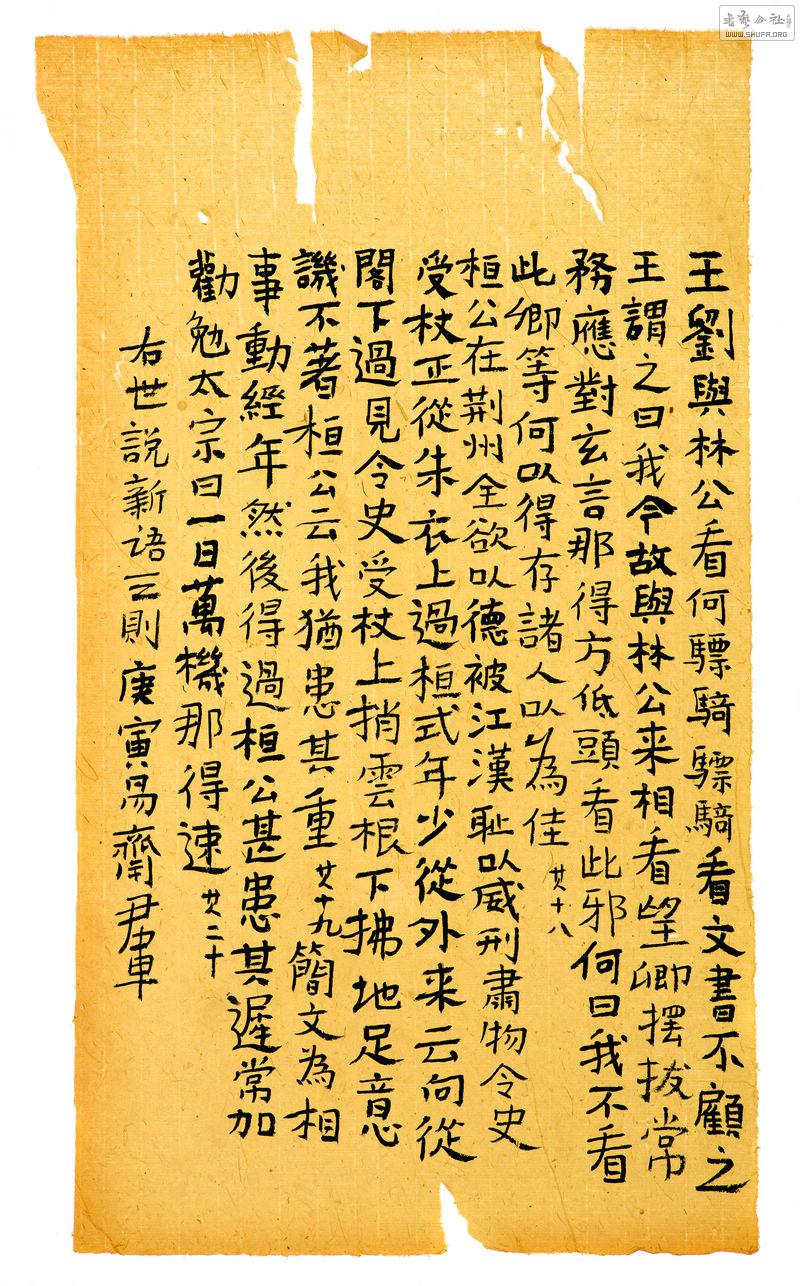 王劉與林公看何驃騎驃騎看文書不顧之
王謂之曰我今故與林公来相看望卿擺拔常
務應對玄言那得方低頭看此邪何曰我不看
此卿等何以得存諸人以為佳 其十八
桓公在荆州全欲以德被江漢恥以威刑肅物令史
受杖正從朱衣上過桓式年少從外来云向從
閣下過見令史受杖上捎雲根下拂地足意
譏不著桓公云我猶患其重 其十九 簡文為相
事動經年然後得過桓公甚患其遲常加
勸勉太宗曰一日萬機那得速 其二十
右世説新语三則庚寅
書藝公社
WWW.SHUFA.ORG